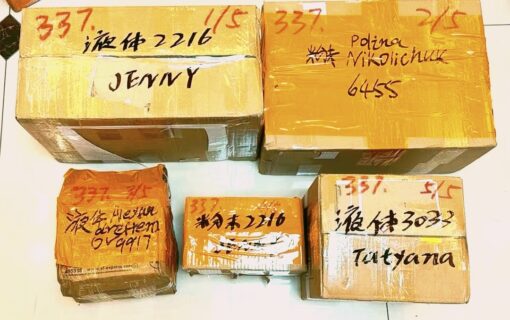 337. 1/5
液体2216
JENNY
337. 2/5
Polina
粉末 Nikolichuk
6455
337. 3/5
液体
9917
337.
粉末2216
337. 5/5
液体3033
Tatyana